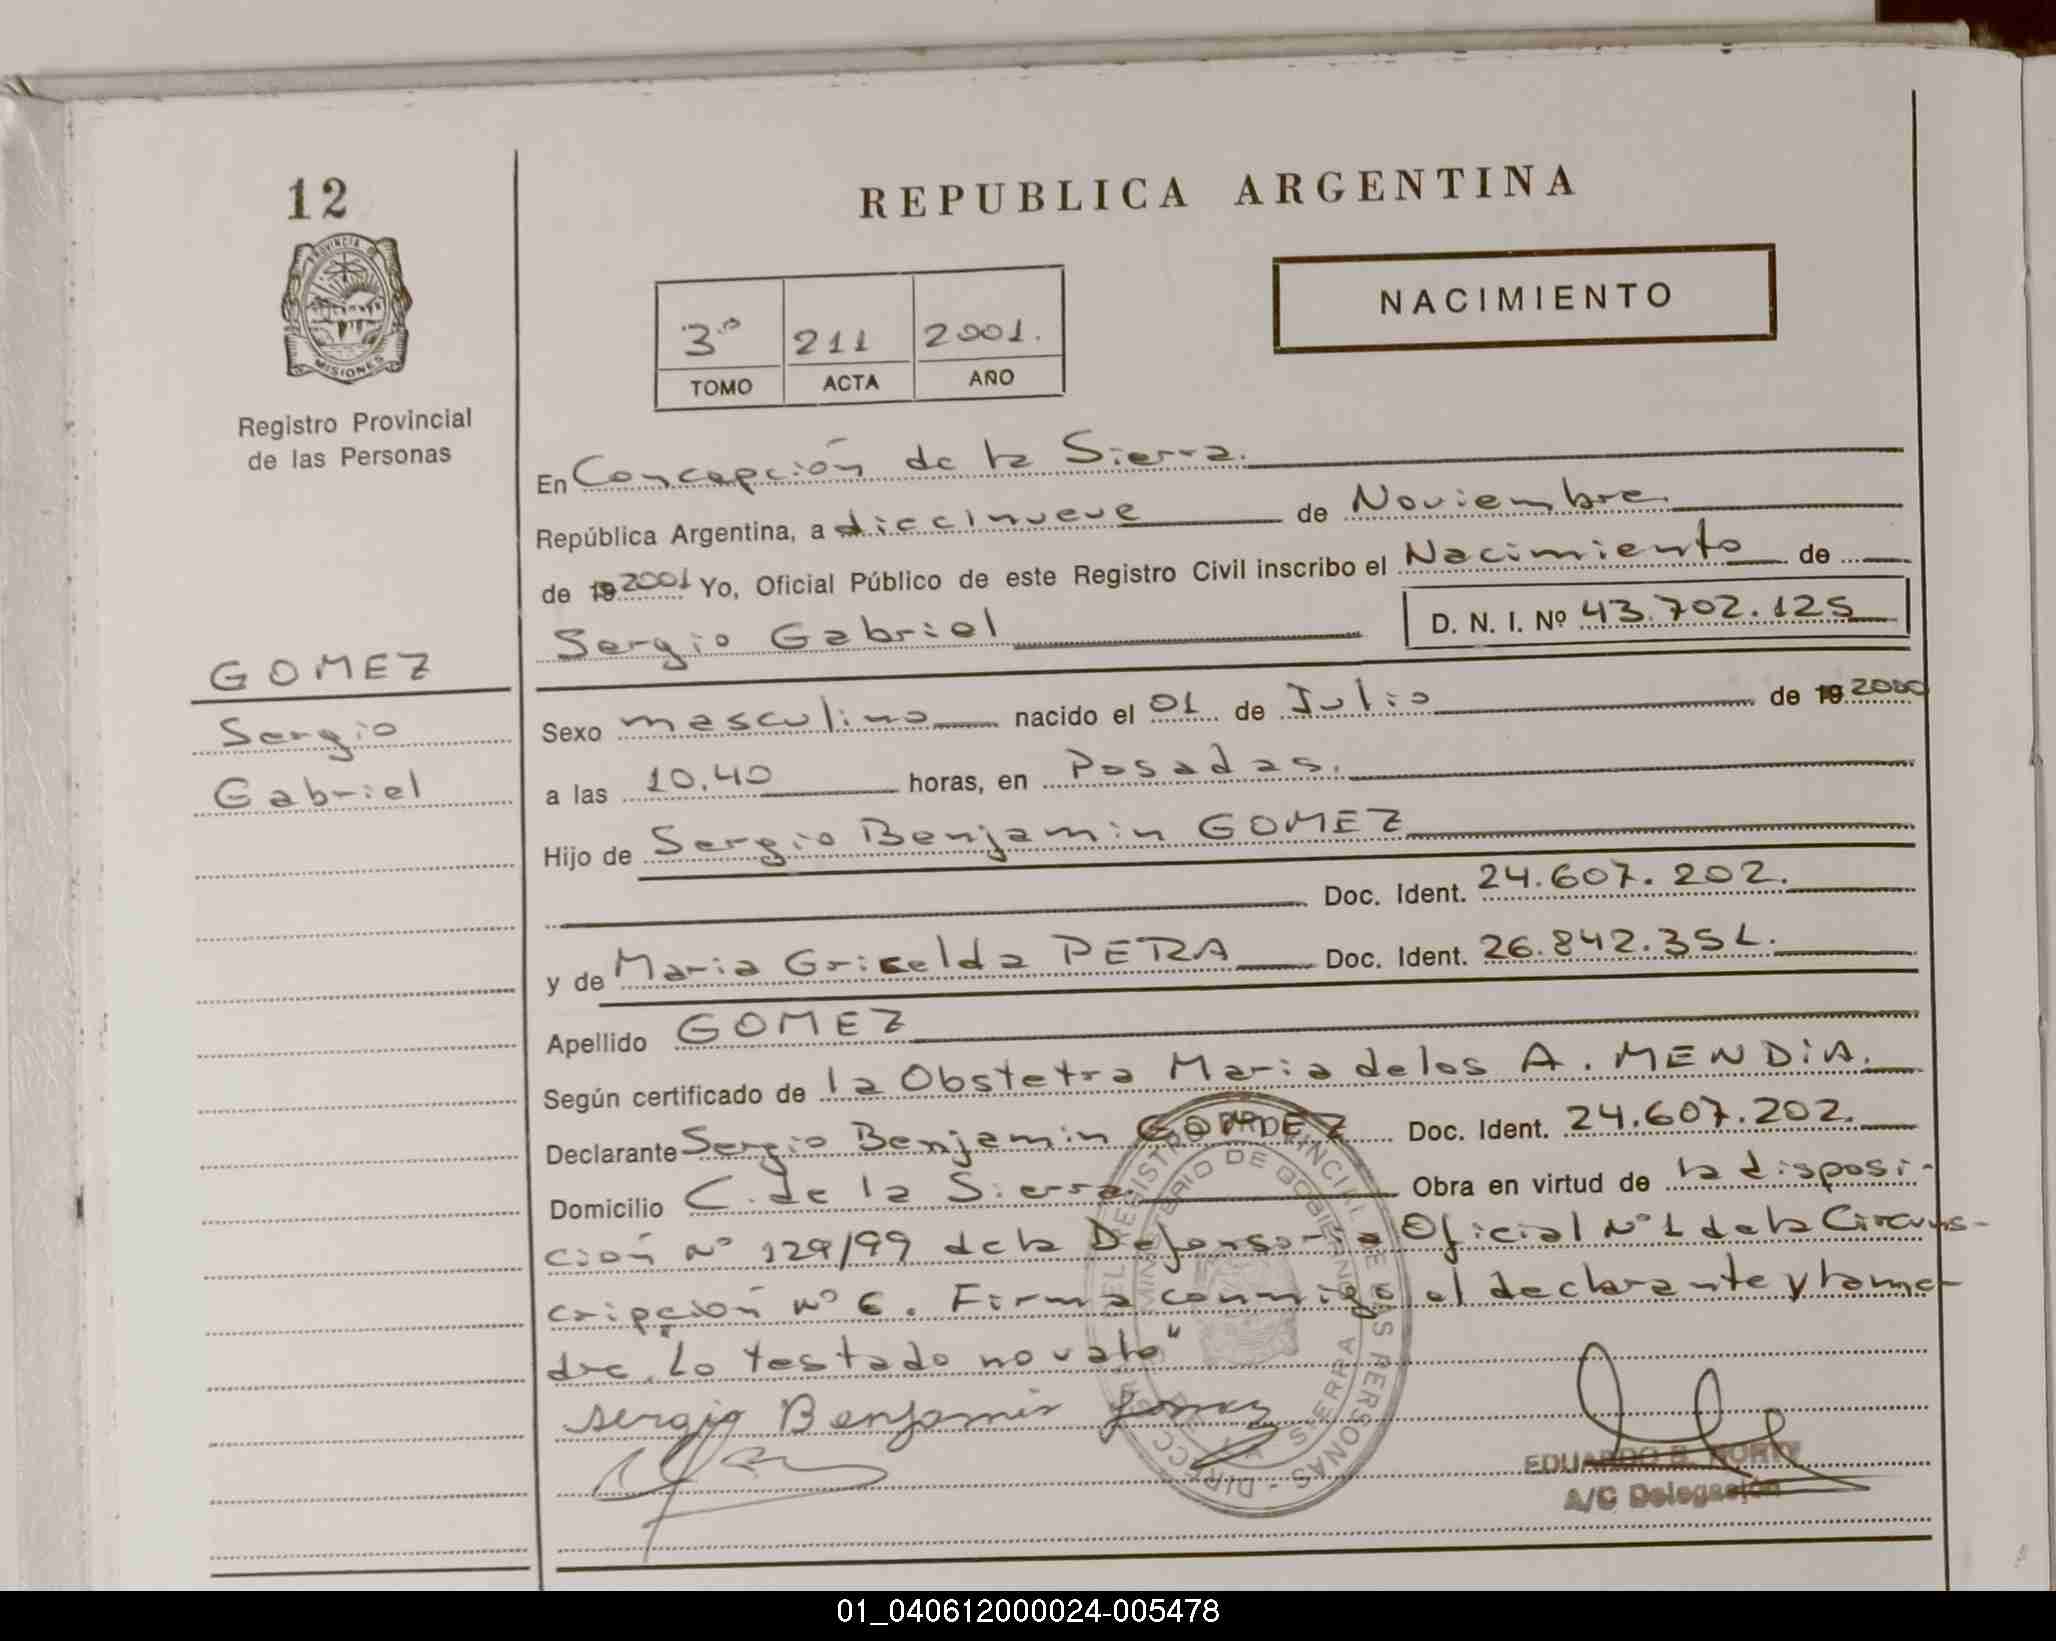 12
REPUBLICA ARGENTINA
PROVINCIA DE
MISIONES
NACIMIENTO
3º 211 2001.
TOMO ACTA AÑO
Registro Provincial
de las Personas
En Concepción de la Sierra.
República Argentina, a diecinueve de Noviembre.
de 19 2001 Yo, Oficial Público de este Registro Civil inscribo el Nacimiento de
Sergio Gabriel D. N. I. Nº 43.702.125
GOMEZ
Sergio
Gabriel
Sexo masculino nacido el 01 de Julio de 19 2000
a las 10.40 horas, en Posadas.
Hijo de Sergio Benjamin GOMEZ
Doc. Ident. 24.607.202.
y de Maria Griselda PERA Doc. Ident. 26.842.351.
Apellido GOMEZ
Según certificado de la Obstetra Maria de los A. MENDiA.
Declarante Sergio Benjamin GOMEZ Doc. Ident. 24.607.202.
Domicilio C. de la Sierra. Obra en virtud de la disposi-
ción Nº 129/99 de la Defensoria Oficial Nº 1 de la Circuns-
cripción Nº 6. Firma conmigo el declarante y la ma-
dre. "Lo testado no vale"
Sergio Benjamin Gomez
MINISTERIO DE GOBIERNO
SIERRA
EDUARDO B.
A/C Delegación
01_040612000024-005478